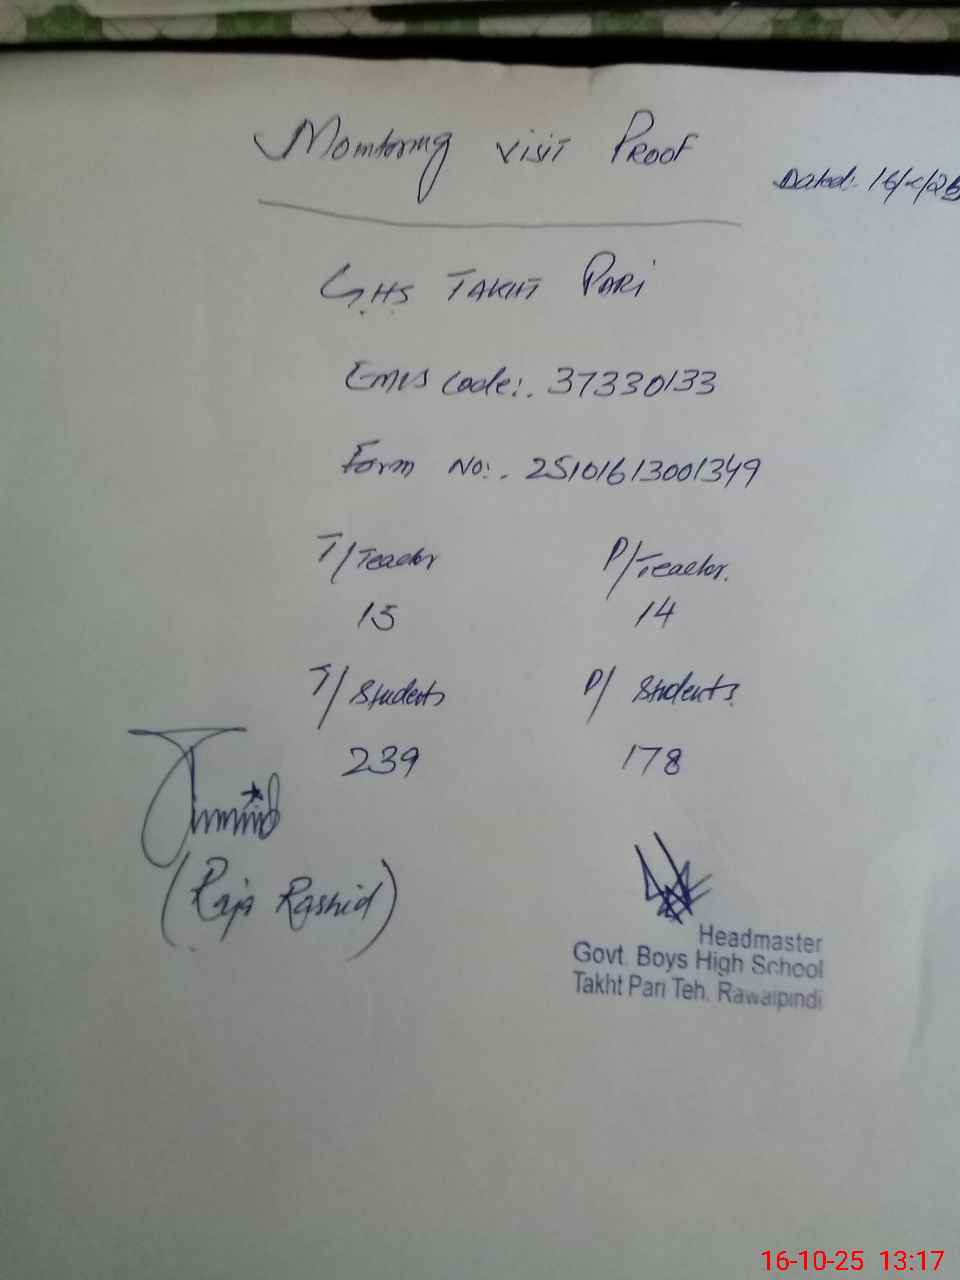 Monitoring Visit Proof
Dated: 16/-/25
GHS TAKHT PARI
Emis Code:. 37330133
Form No:. 25101613001349
T/Teacher P/Teacher.
15 14
T/Students P/Students.
239 178
(Raja Rashid)
Headmaster
Govt. Boys High School
Takht Pari Teh. Rawalpindi
16-10-25 13:17